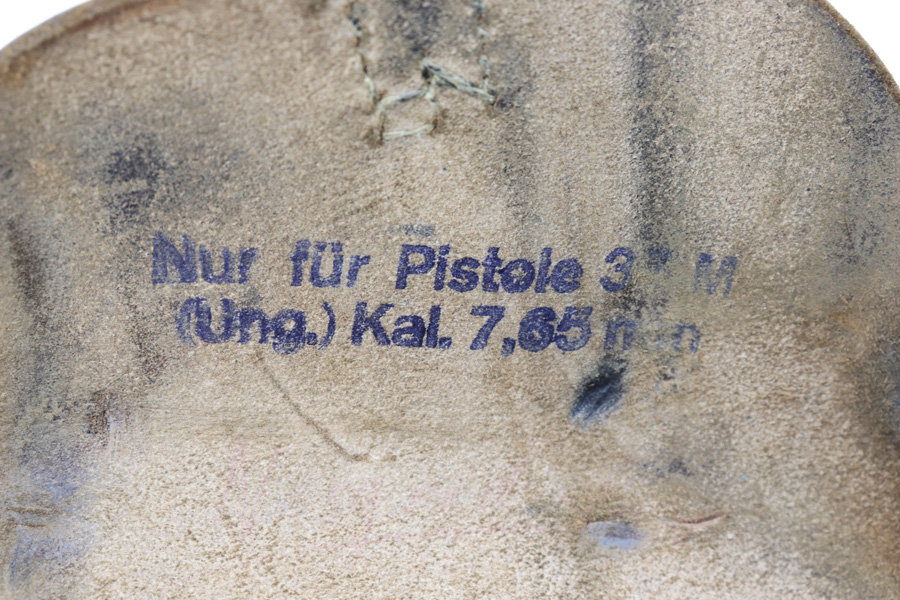 Nur für Pistole 37 M
(Ung.) Kal. 7,65 mm